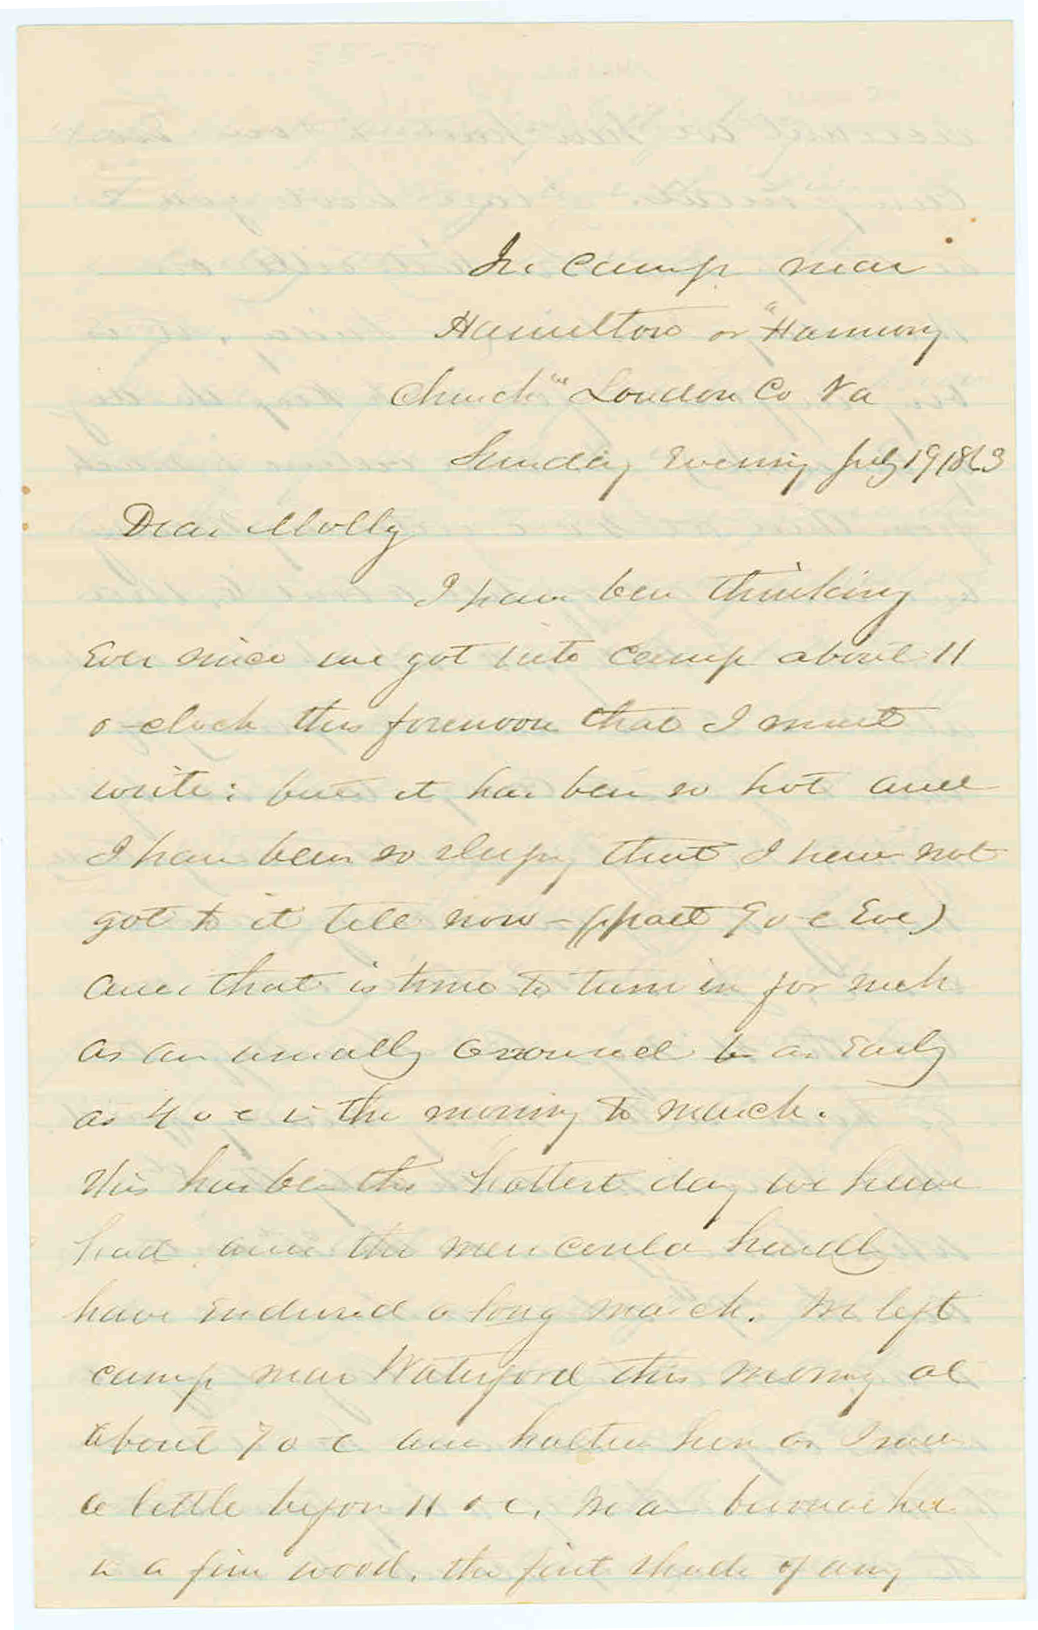 In camp near
Hamilton or "Harmony
Church" Loudon Co Va
Sunday Evening July 19 1863
Dear Molly
I have ben thinking
Ever since we got into camp about 11
o-clock this forenoon that I must
write; but it has ben so hot and
I have been so sleepy that I have not
got to it till now - (½ past 9 o c Eve)
and that is time to turn in for such
as are usually aroused as Early
as 4 o c in the morning to march.
This has ben the hottest day we have
had and the men could hardly
have Endured a long march. We left
camp near Waterford this morning at
about 7 o-c and halted here as I said
a little before 11 o c. We are bivouacked
in a fine wood. the first shade of any